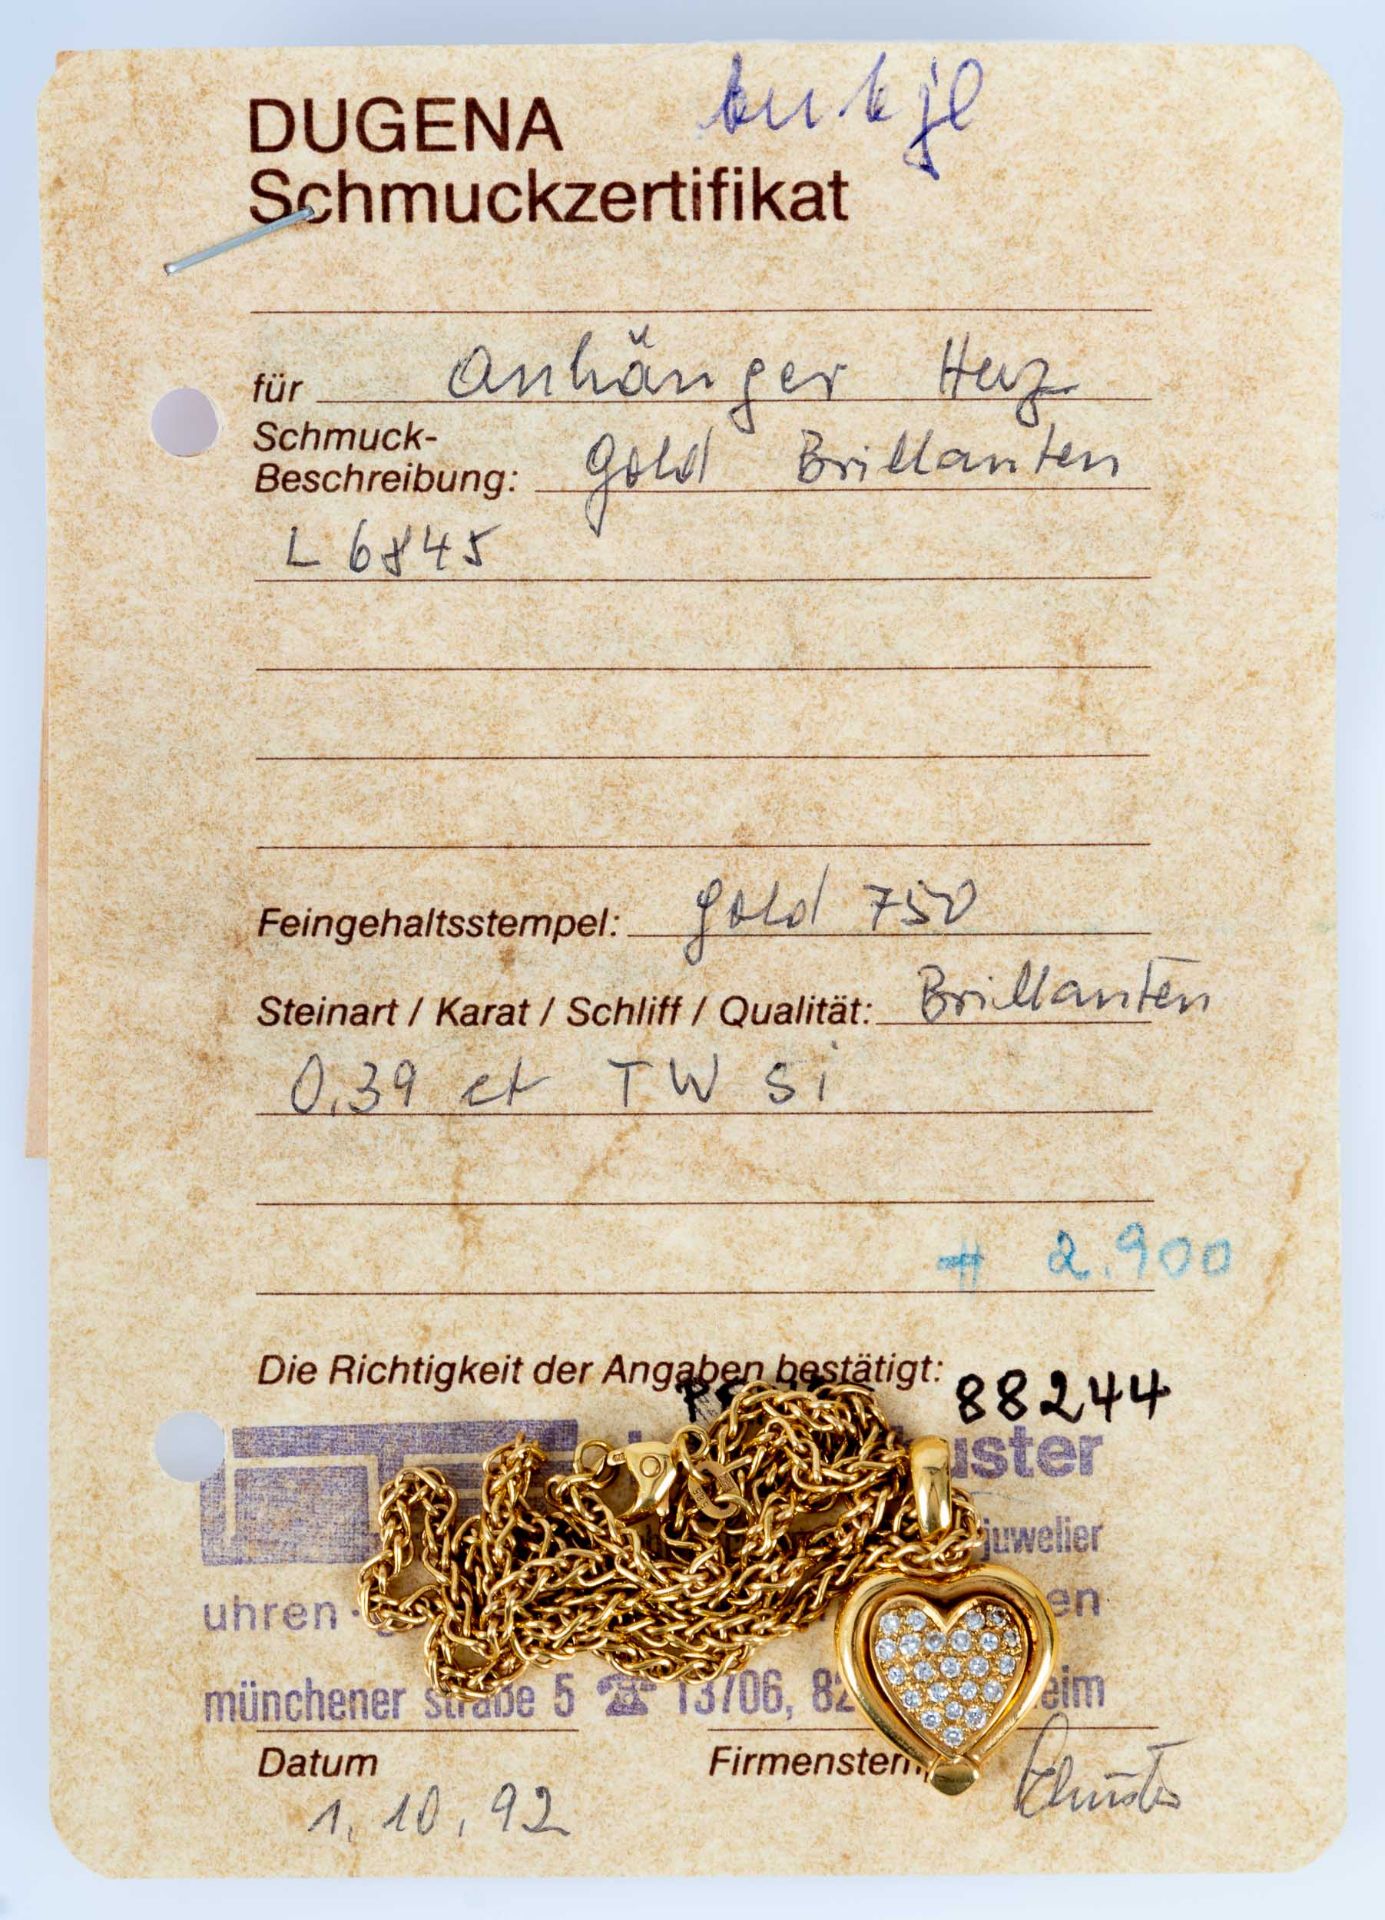 DUGENA
Schmuckzertifikat
für Anhänger Herz
Schmuck-
Beschreibung: Gold Brillanten
L 6845
Feingehaltsstempel: Gold 750
Steinart / Karat / Schliff / Qualität: Brillanten
0,39 ct TW Si
# 2.900
Die Richtigkeit der Angaben bestätigt:
88244
uster
juwelier
uhren · en
münchener straße 5 ☎ 13706, 82 eim
Datum Firmenstem
1.10.92 Schuster
585